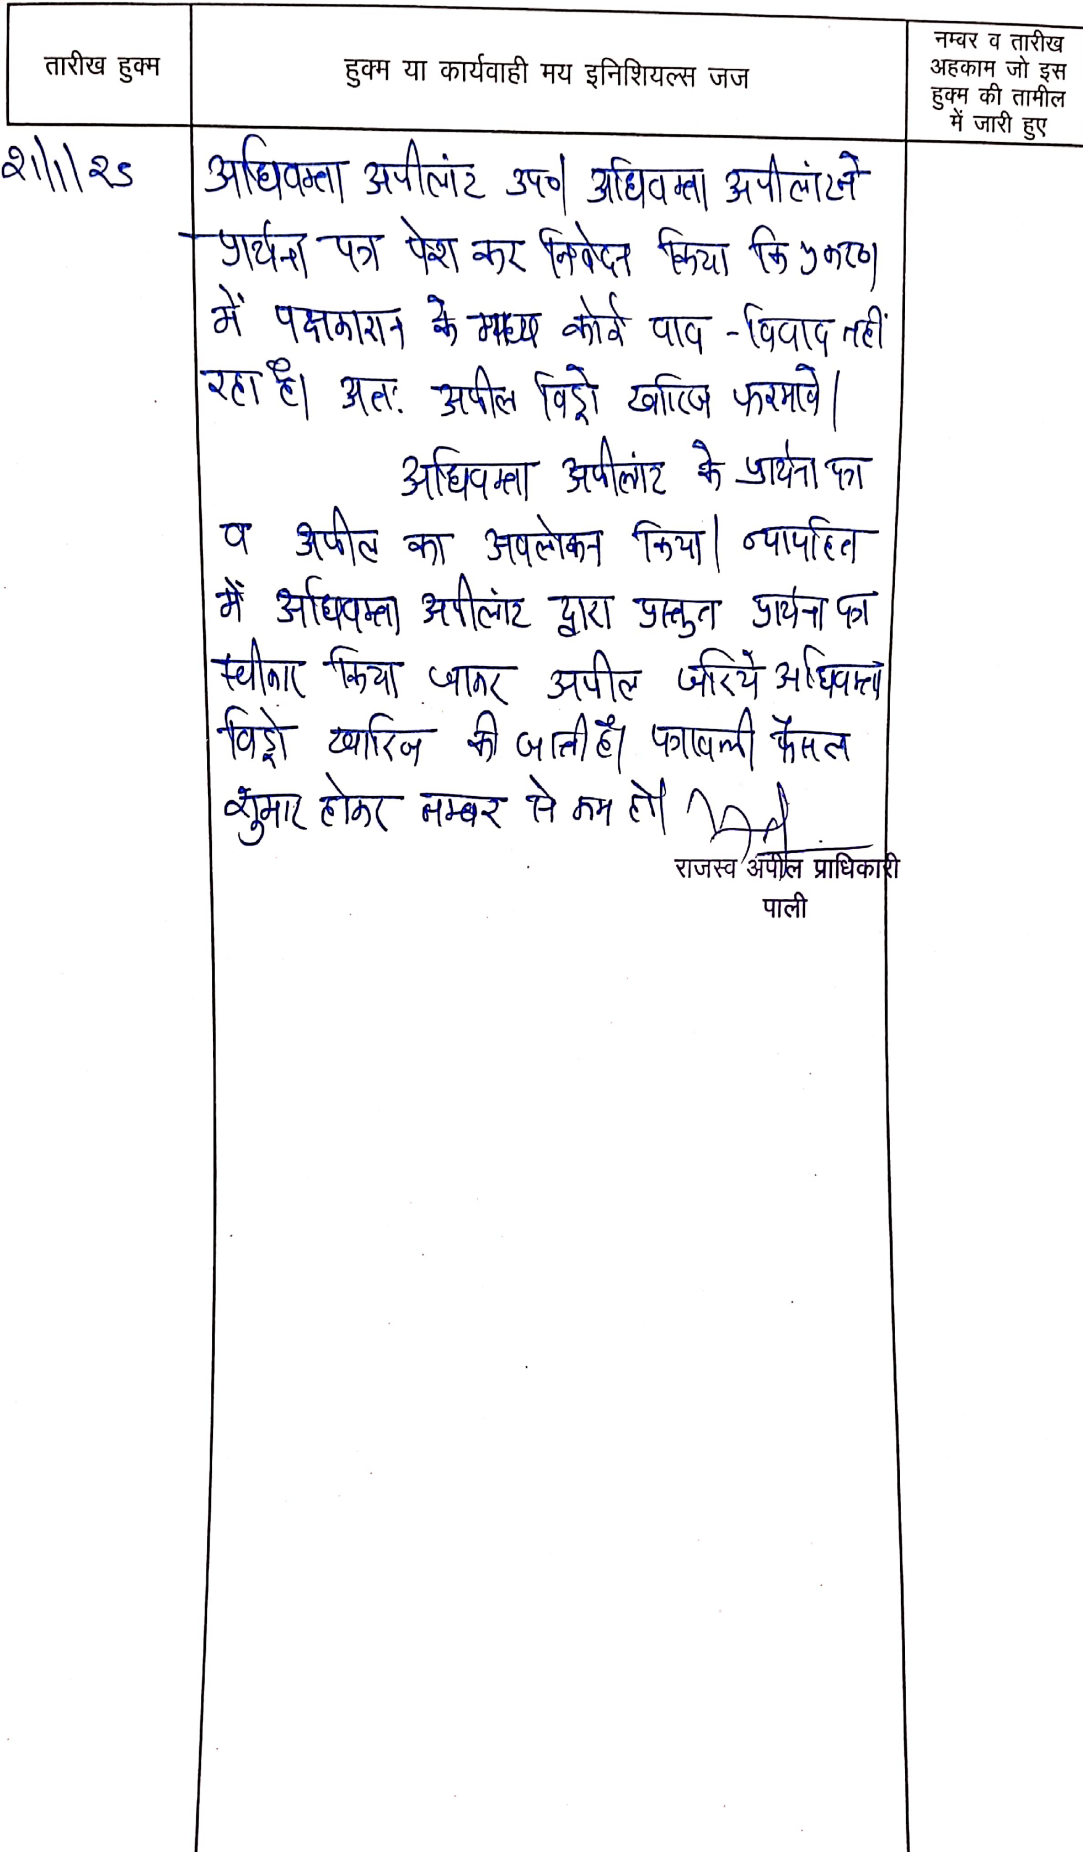 तारीख हुक्म
हुक्म या कार्यवाही मय इनिशियल्स जज
नम्बर व तारीख
अहकाम जो इस
हुक्म की तामील
में जारी हुए
21/1/25
अधिवक्ता अपीलांट उप०। अधिवक्ता अपीलांट ने
प्रार्थना पत्र पेश कर निवेदन किया कि प्रकरण
में पक्षकारान के मध्य कोई वाद-विवाद नहीं
रहा है। अतः अपील विड्रो खारिज फरमावे।
अधिवक्ता अपीलांट के प्रार्थना पत्र
व अपील का अवलोकन किया। न्यायहित
में अधिवक्ता अपीलांट द्वारा प्रस्तुत प्रार्थना पत्र
स्वीकार किया जाकर अपील जरिये अधिवक्ता
विड्रो खारिज की जाती है। पत्रावली फैसल
शुमार होकर नम्बर से कम हो।
राजस्व अपील प्राधिकारी
पाली